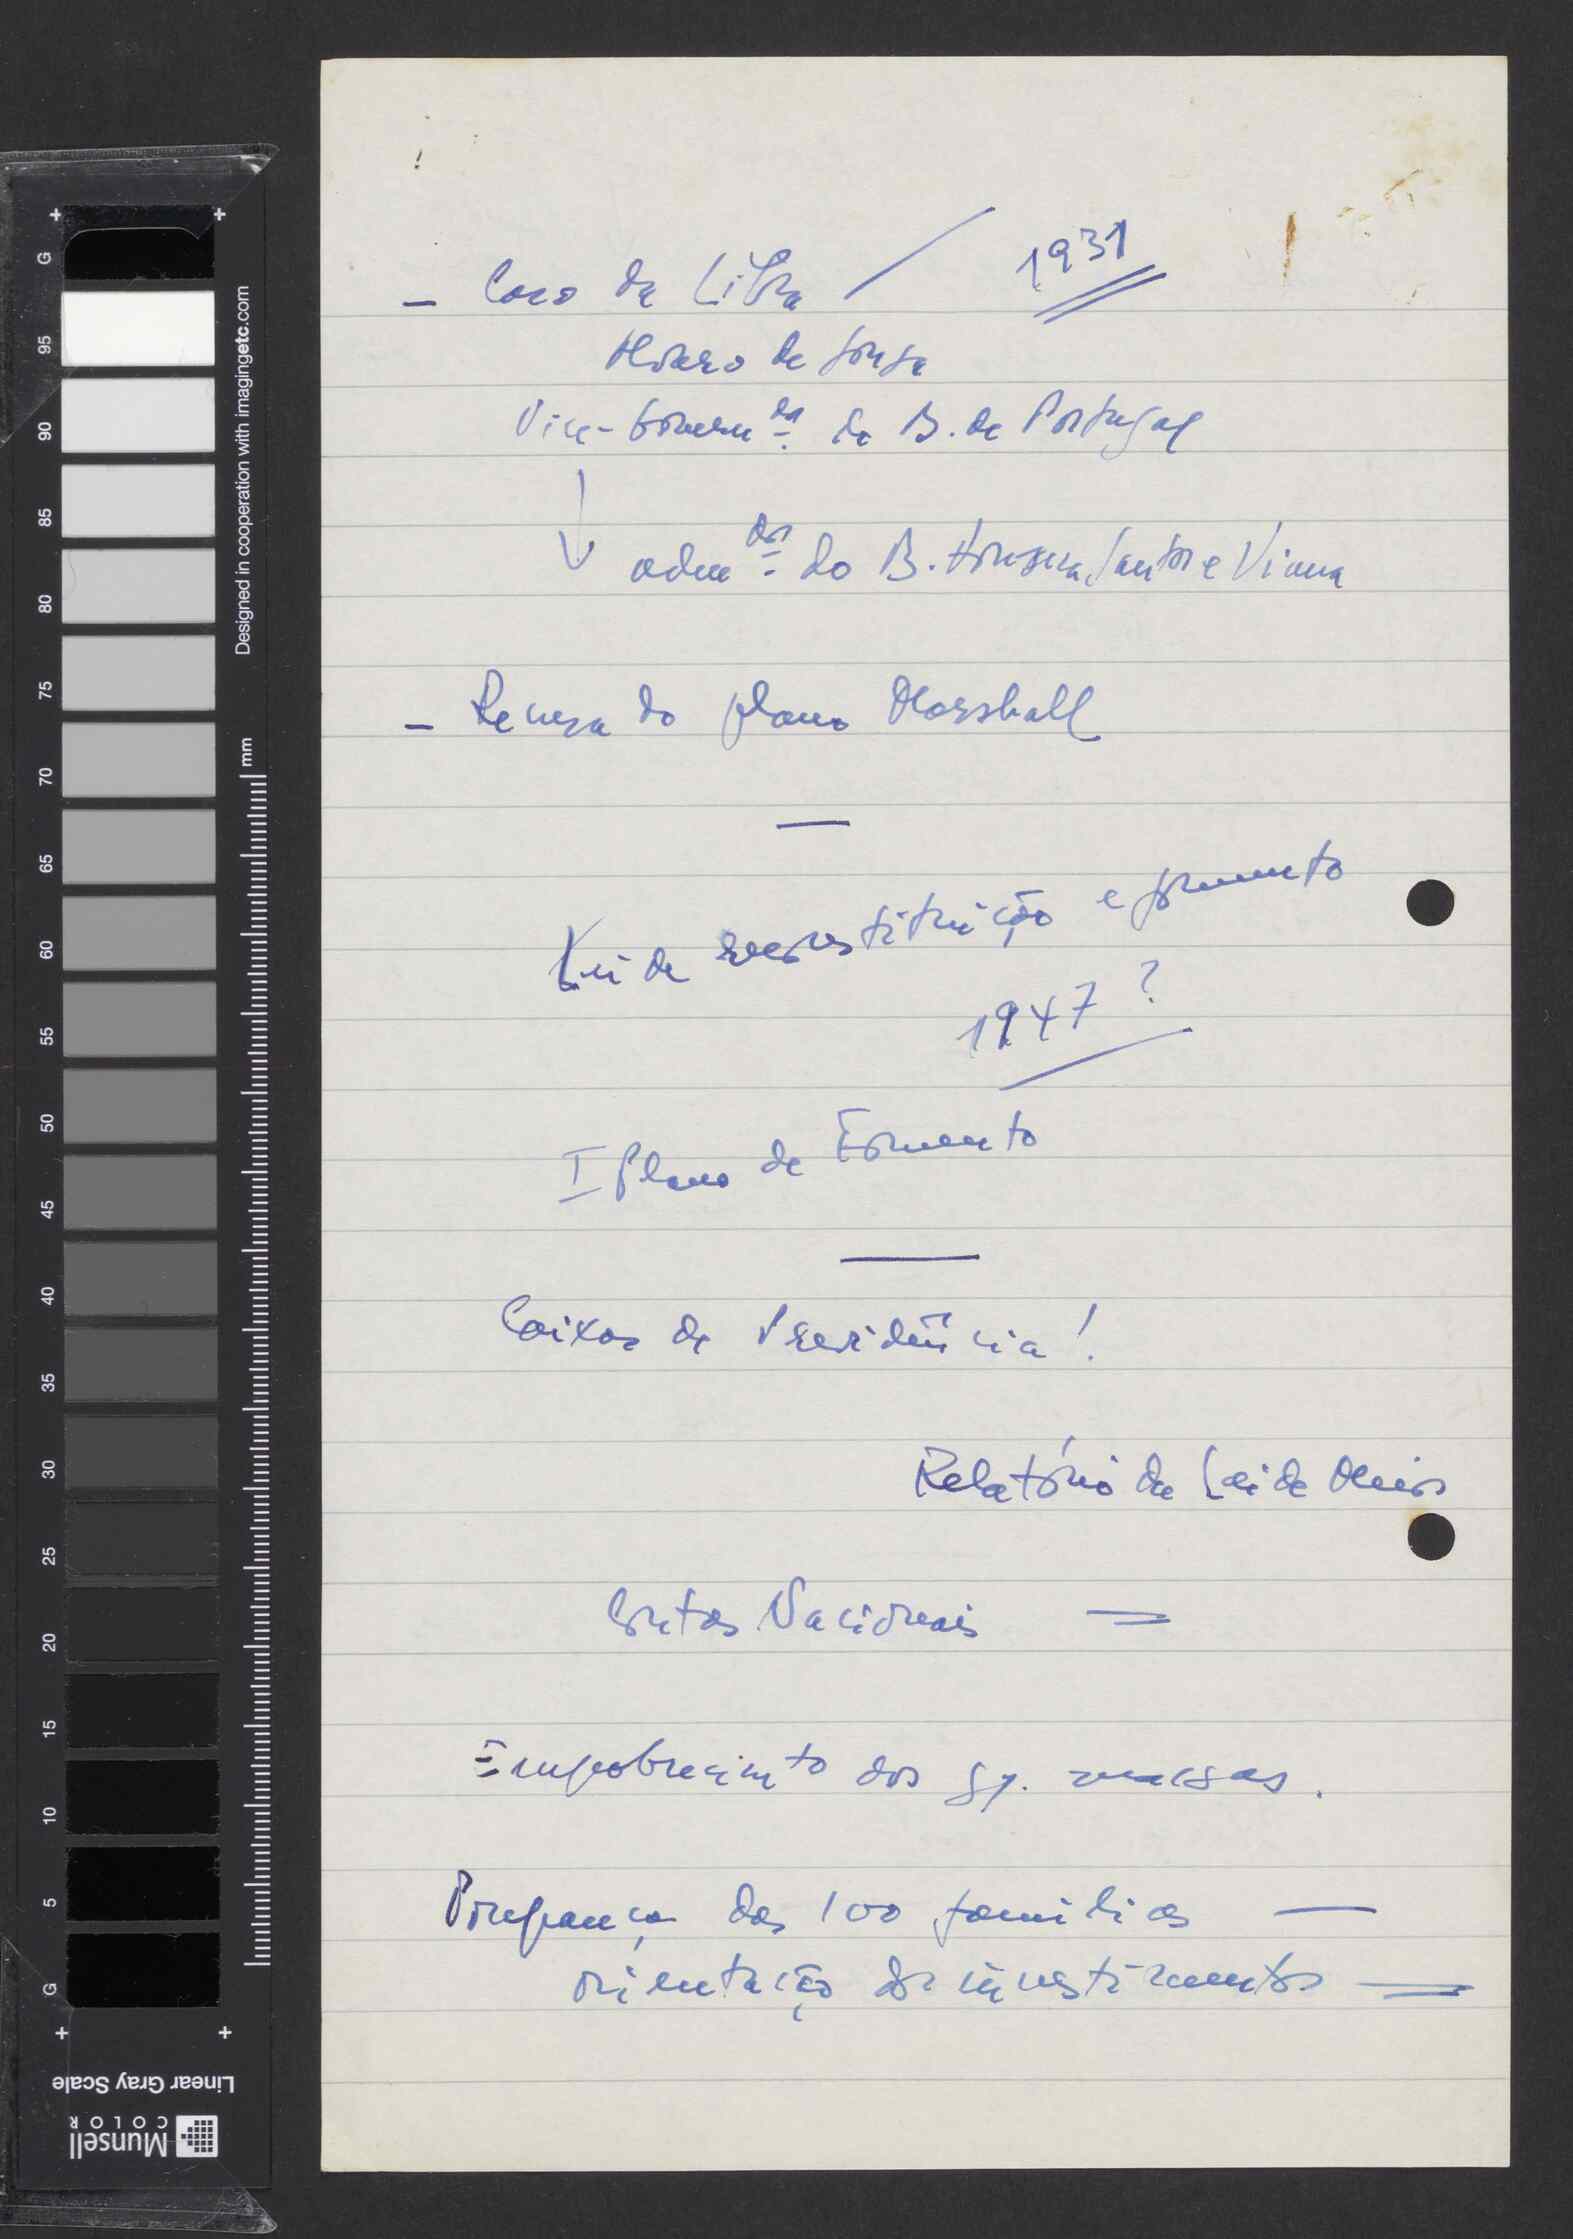 - Caso da Libra / 1931
Álvaro de Sousa
Vice-Govern.dor do B. de Portugal
↓ adm.dor do B. Fonseca, Santos e Viana
- Recusa do plano Marshall
—
Lei de reconstituição e fomento
1947?
I Plano de Fomento
—
Caixas de Previdência!
Relatório da Lei de Meios
Contas Nacionais =
Empobrecimento das gr. massas.
Poupança das 100 famílias —
orientação dos investimentos =
G
95
90
85
80
75
70
65
60
55
50
45
40
35
30
25
20
15
10
5
G
Designed in cooperation with imagingetc.com
mm
Linear Gray Scale
Munsell
COLOR